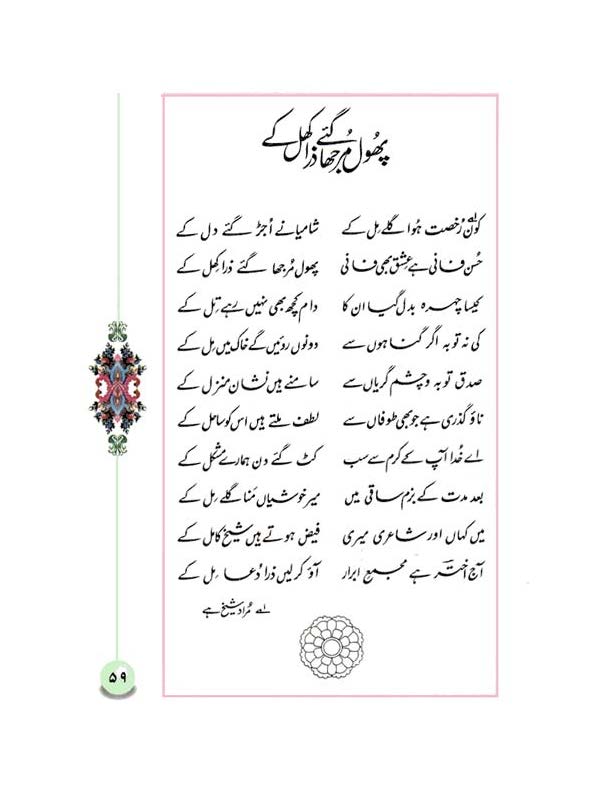 پھول مُرجھا گئے ذرا کھل کے
کون رُخصت ہُوا گلے مِل کے شامیانے اُجڑ گئے دل کے
حُسن فانی ہے عشق بھی فانی پھول مُرجھا گئے ذرا کھل کے
کیسا چہرہ بدل گیا ان کا دام کچھ بھی نہیں رہے تِل کے
کی نہ توبہ اگر گناہوں سے دونوں روئیں گے خاک میں مِل کے
صدق توبہ و چشم گریاں سے سامنے ہیں نشان منزل کے
ناؤ گذری ہے جو بھی طوفاں سے لطف ملتے ہیں اس کو ساحل کے
اے خُدا آپ کے کرم سے سب کٹ گئے دن ہمارے مشکل کے
بعد مدت کے بزم ساقی میں میر خوشیاں مَنا گلے مِل کے
میں کہاں اور شاعری میری فیض ہوتے ہیں شیخ کامل کے
آج اختر ہے مجمع ابرار آؤ کر لیں ذرا دُعا مِل کے
لے مُراد شیخ ہے
۵۹